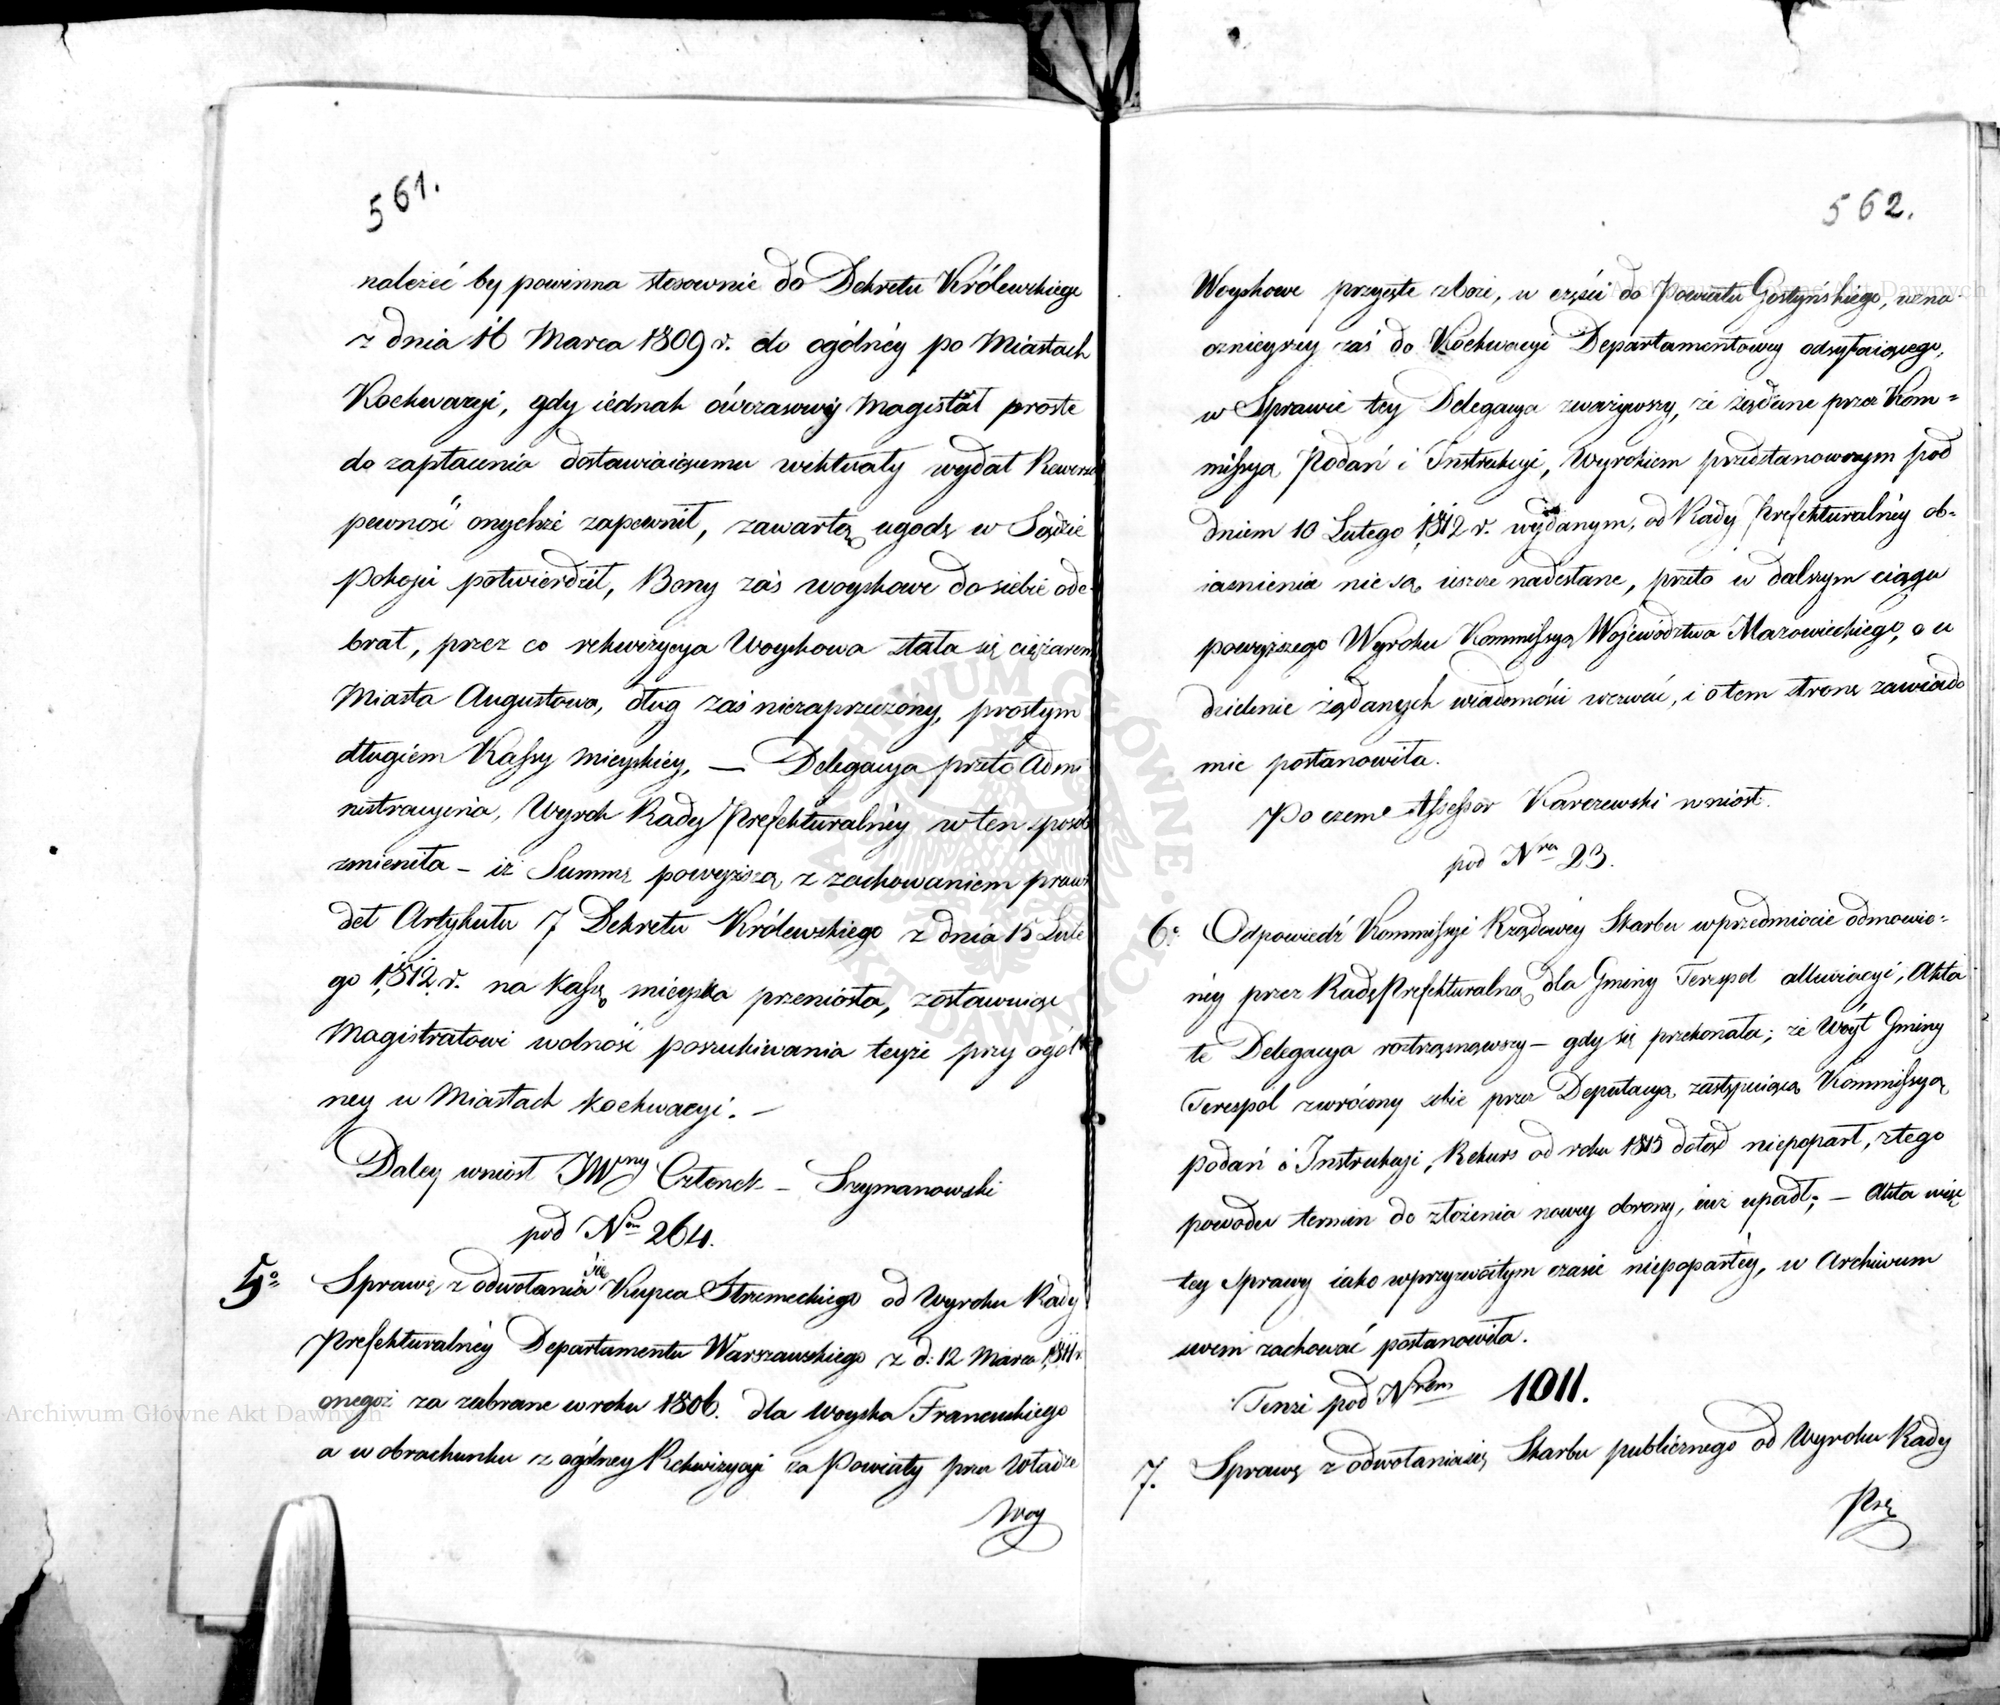 561.
należeć by powinna stosownie do Dekretu Królewskiego
z dnia 16 Marca 1809 r. do ogólnéy po Miastach
Kochwacyi, gdy iednak ówczasowy Magistat proste
do zapłacenia dostawiaiącemu wiktuały wydał Rewersa
pewność onychże zapewnił, zawartą ugodę w Sądzie
Pokoju potwierdził, Bony zaś woyskowe do siebie ode-
brał, przez co rekwizycya Woyskowa stała się ciężarem
Miasta Augustowa, dług zaś niezaprzeczony, prostym
długiem Kassy mieyskiey, — Delegacya przeto Admi
nistracyina, Wyrok Rady Prefekturalnéy w ten sposób
zmieniła – iż Summę powyższą z zachowaniem prawi
deł Artykułu 7 Dekretu Królewskiego z dnia 15 Lute
go 1812. r. na kassę mieyska przeniosła, zostawuiąc
Magistratowi wolność poszukiwania teyże przy ogól
ney w Miastach kochwacyi. —
Daley wniosł JWny Członek – Szymanowski
pod Nim 264.
5o Sprawę z odwołania się Kupca Strzemeckiego od Wyroku Rady
Prefekturalnéy Departamentu Warszawskiego z d: 12 Marca 1811 r.
onegoż za zabrane w roku 1806. dla woyska Francuskiego
a w obrachunku z ogólney Rekwizycyi za Powiaty przez Władze
Woy
562.
Woyskowe przyięte zboże, w części do Powiatu Gostyńskiego, w zna
cznieyszey zaś do Kochwacyi Departamentowey odsyłaiącego,
w Sprawie tey Delegacya zważywszy, że żądane przez Kom=
missyą Podań i Instrukcyi, Wyrokiem przedstanowczym pod
dniem 10 Lutego 1812 r. wydanym, od Rady Prefekturalnéy ob-
iaśnienia nie są ieszcze nadesłane, przeto w dalszym ciągu
powyższego Wyroku Kommissyą Województwa Mazowieckiego, o u
dzielenie żądanych wiadomości wezwać, i o tem stronę zawiado
mic postanowiła.
Po czem Assessor Karczewski wniosł.
pod Nra 23.
6o Odpowiedź Kommissyi Rządowéy Skarbu w przedmiocie odmowio=
néy przez Radę Prefekturalną dla Gminy Terespol alluwiacyi, Akta
te Delegacya roztrząsnąwszy – gdy się przekonała; że Wóyt Gminy
Terespol zwrócony sobie przez Deputacyą zastępuiącą Kommissyą
podań i Instrukcyi, Rekurs od roku 1813 dotąd niepoparł, z tego
powodu termin do złożenia nowey obrony, iuż upadł; — Akta więc
tey Sprawy iako w przyzwoitym czasie niepopartéy, w Archiwum
swem zachować postanowiła.
Tenże pod Nrem 1011.
7. Sprawę z odwołania się Skarbu publicznego od Wyroku Rady
Prę